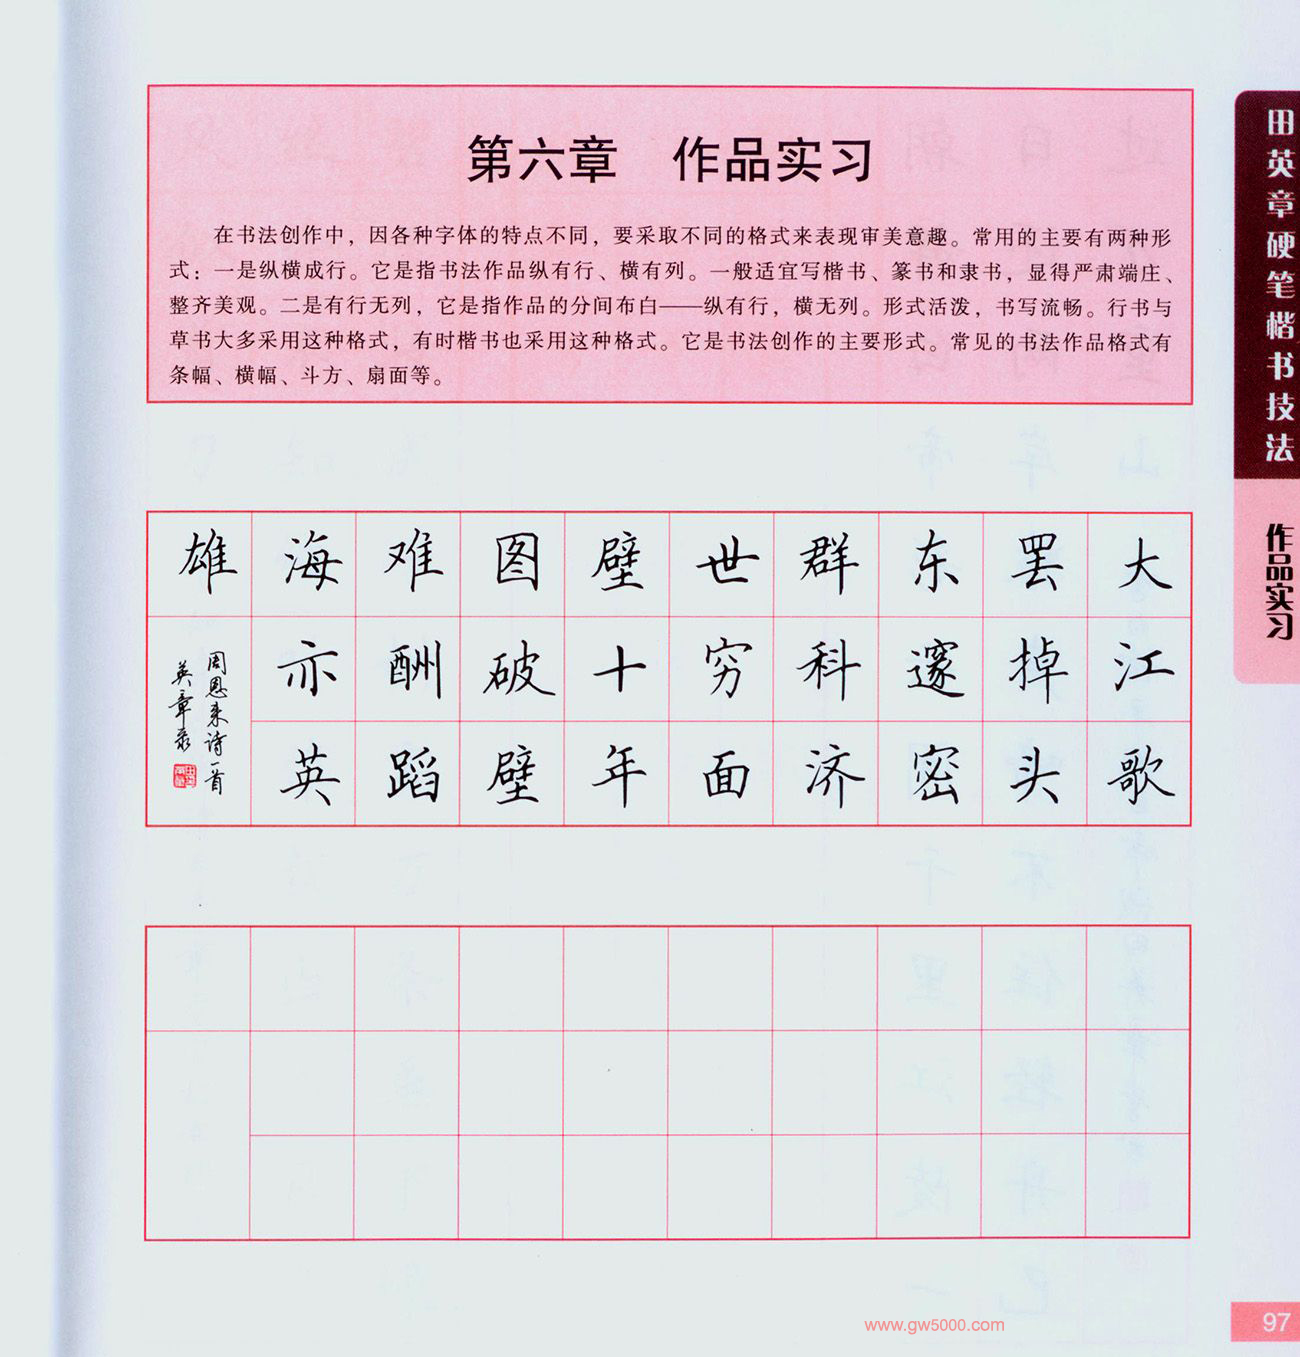 第六章 作品实习
在书法创作中，因各种字体的特点不同，要采取不同的格式来表现审美意趣。常用的主要有两种形
式：一是纵横成行。它是指书法作品纵有行、横有列。一般适宜写楷书、篆书和隶书，显得严肃端庄、
整齐美观。二是有行无列，它是指作品的分间布白——纵有行，横无列。形式活泼，书写流畅。行书与
草书大多采用这种格式，有时楷书也采用这种格式。它是书法创作的主要形式。常见的书法作品格式有
条幅、横幅、斗方、扇面等。
大江歌
罢掉头
东邃密
群科济
世穷面
壁十年
图破壁
难酬蹈
海亦英
雄
周恩来诗一首
英章录
田英章硬笔楷书技法
作品实习
www.gw5000.com
97